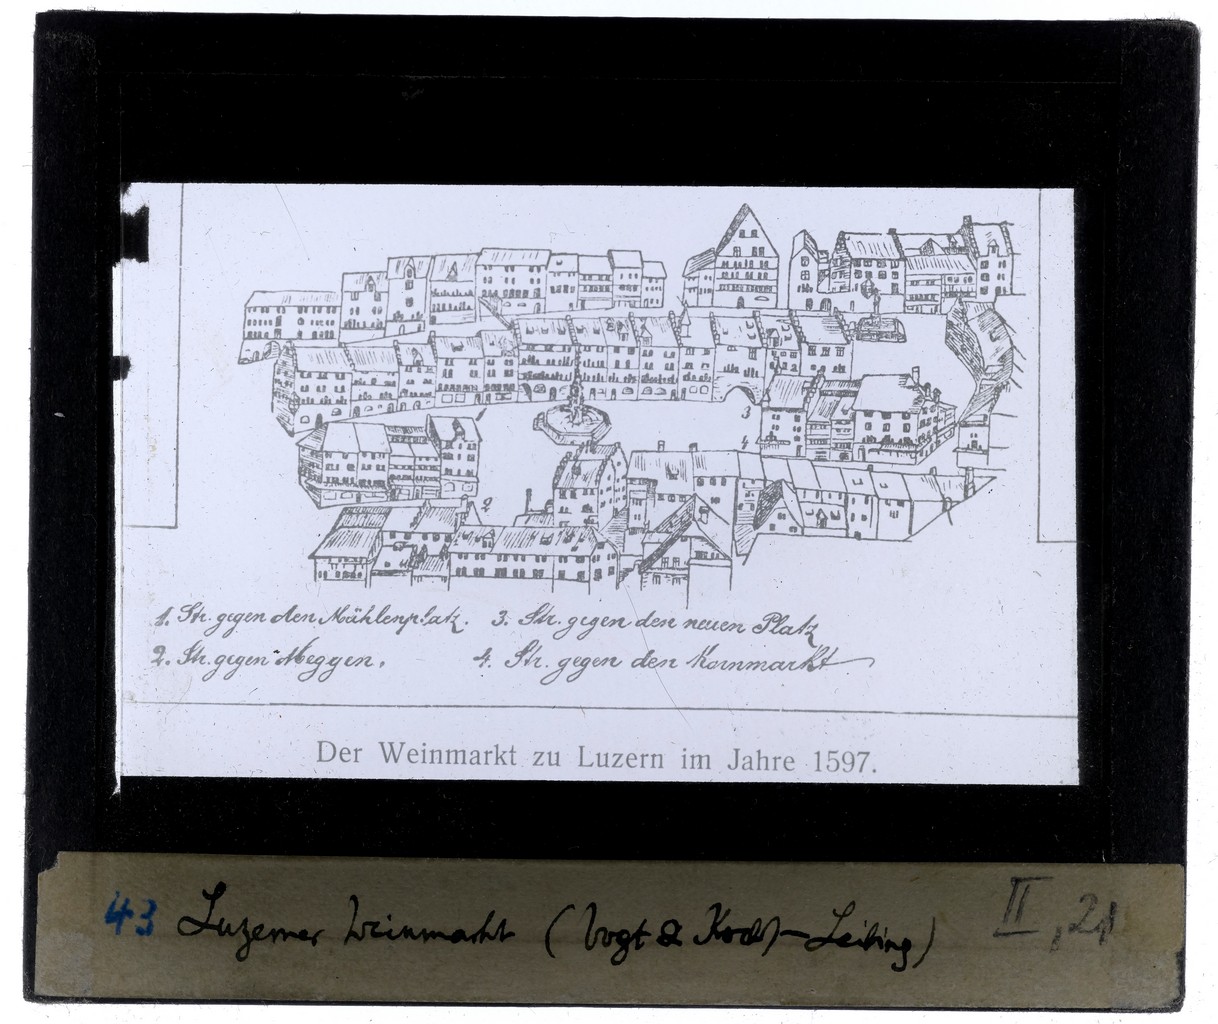 1
2
3
4
1. Str. gegen den Mühlenplatz. 3. Str. gegen den neuen Platz
2. Str. gegen Meggen. 4. Str. gegen den Kornmarkt
Der Weinmarkt zu Luzern im Jahre 1597.
43 Luzerner Weinmarkt (Vogt & Koch – Leibing) II, 21